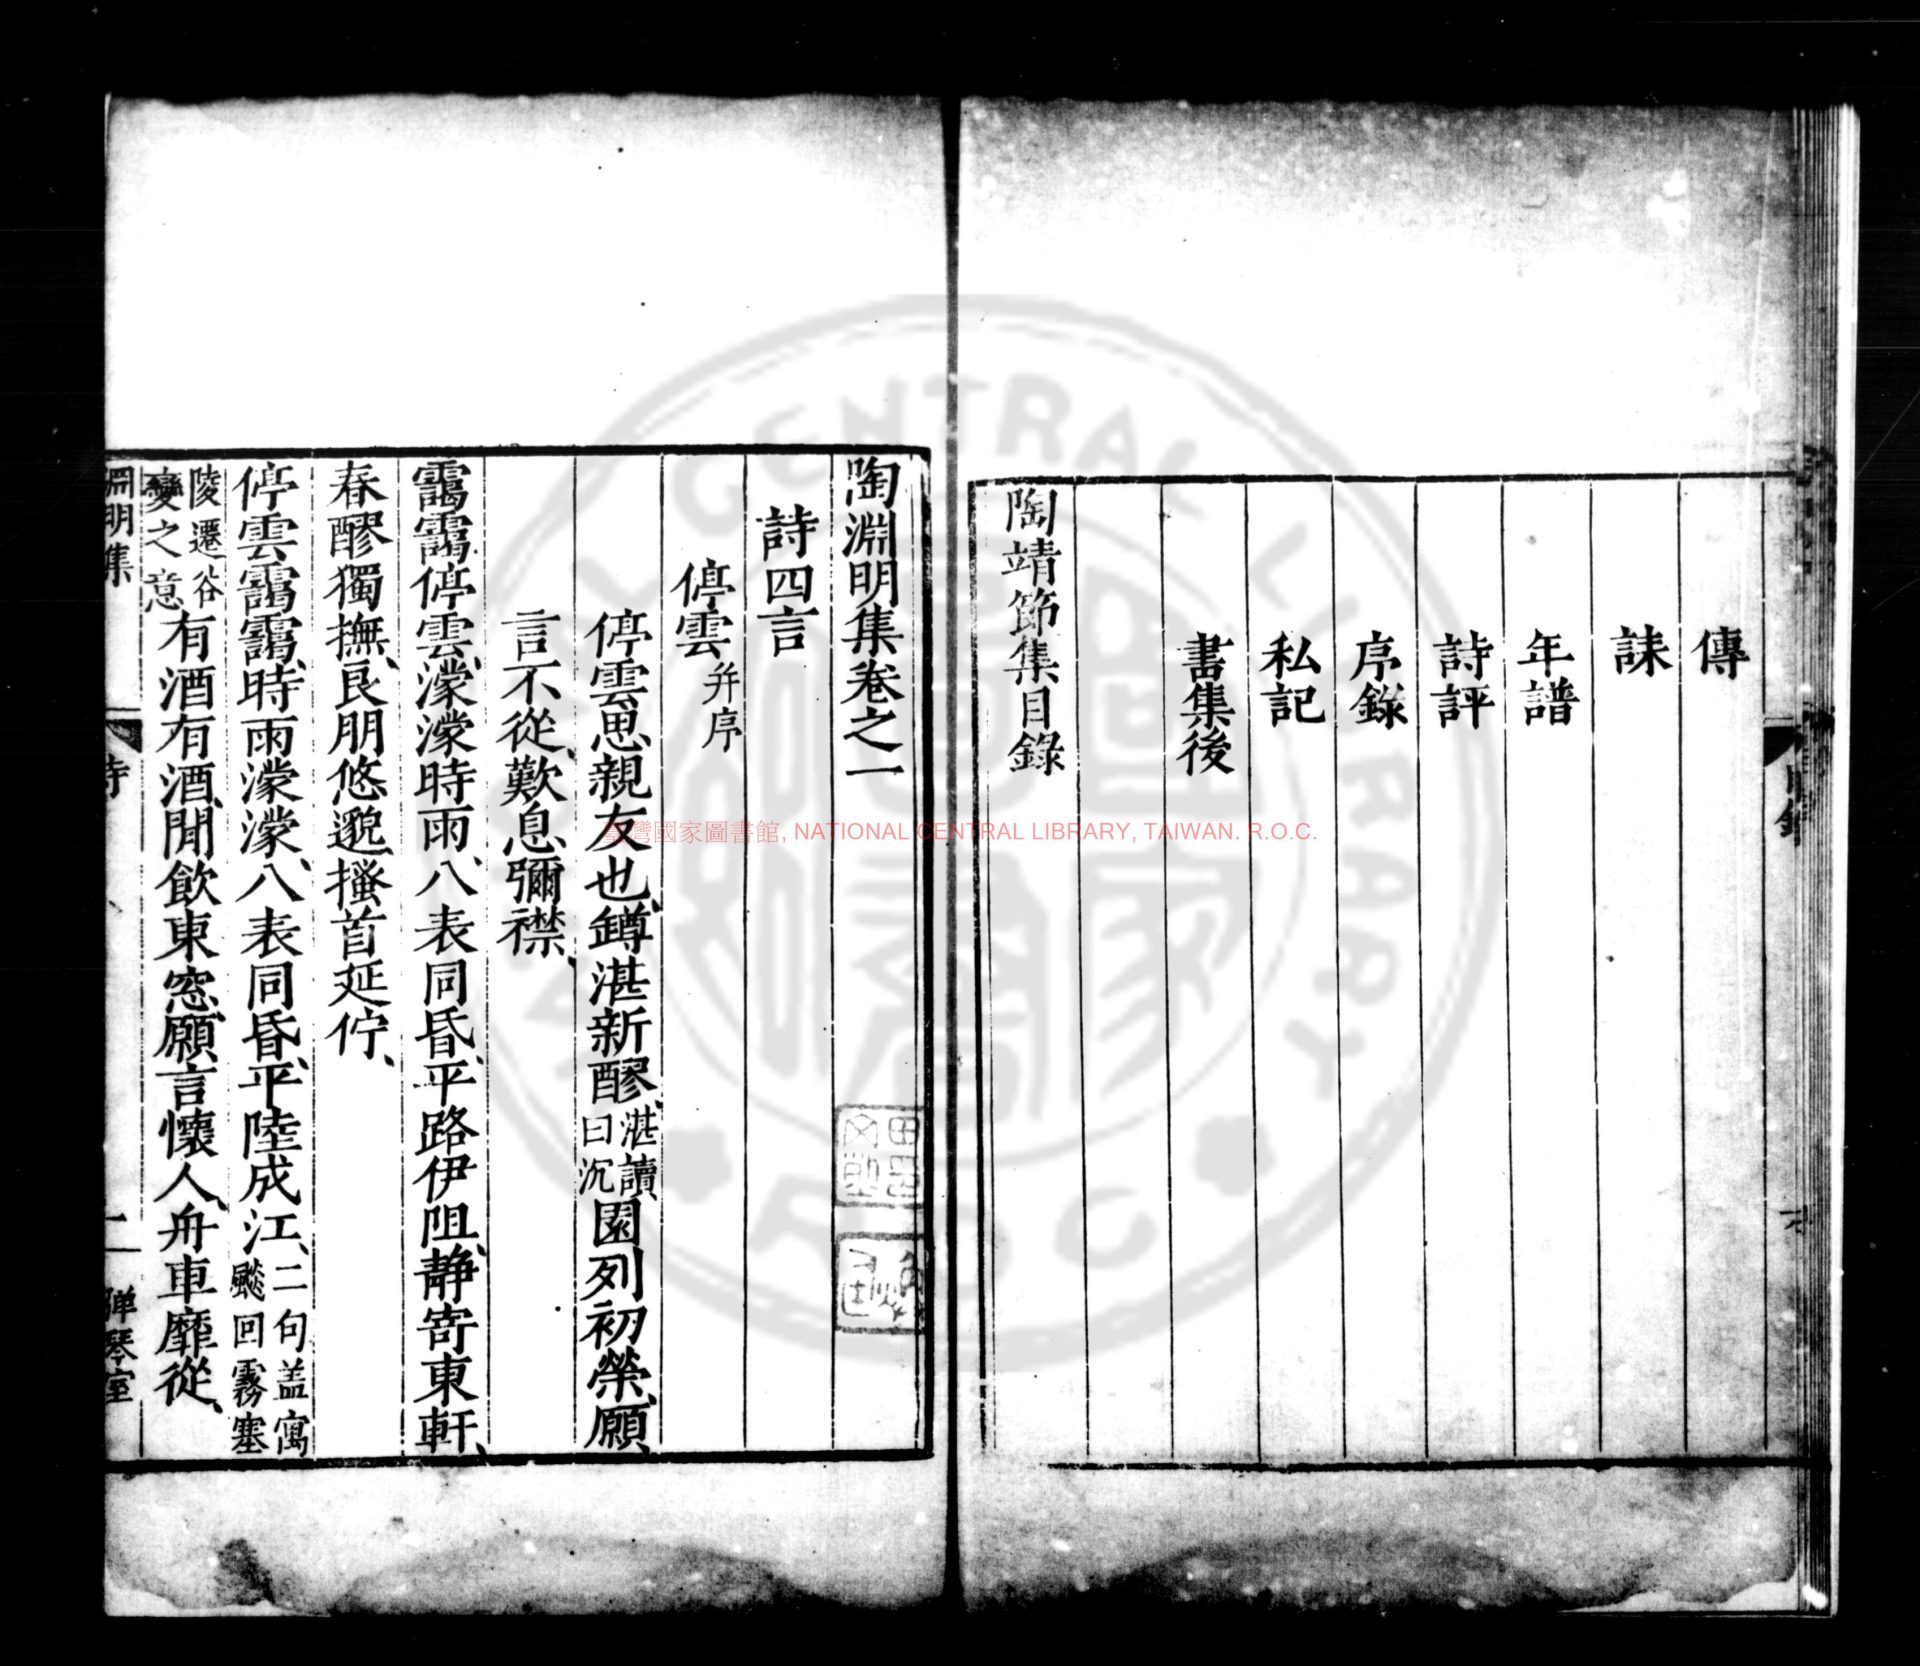 傳
誄
年譜
詩評
序錄
私記
書集後
陶靖節集目錄
陶淵明集卷之一
詩四言
停雲并序
停雲思親友也、罇湛新醪、湛讀曰沉園列初榮、願
言不從、歎息彌襟、
靄靄停雲、濛濛時雨、八表同昏、平路伊阻、靜寄東軒、
春醪獨撫、良朋悠邈、搔首延佇、
停雲靄靄、時雨濛濛、八表同昏、平陸成江、二句盖寓飈回霧塞
陵遷谷變之意有酒有酒、閒飲東窓、願言懷人、舟車靡從、
淵明集
詩
一
彈琴室
臺灣國家圖書館, NATIONAL CENTRAL LIBRARY, TAIWAN. R.O.C.
NATIONAL CENTRAL LIBRARY
R.O.C